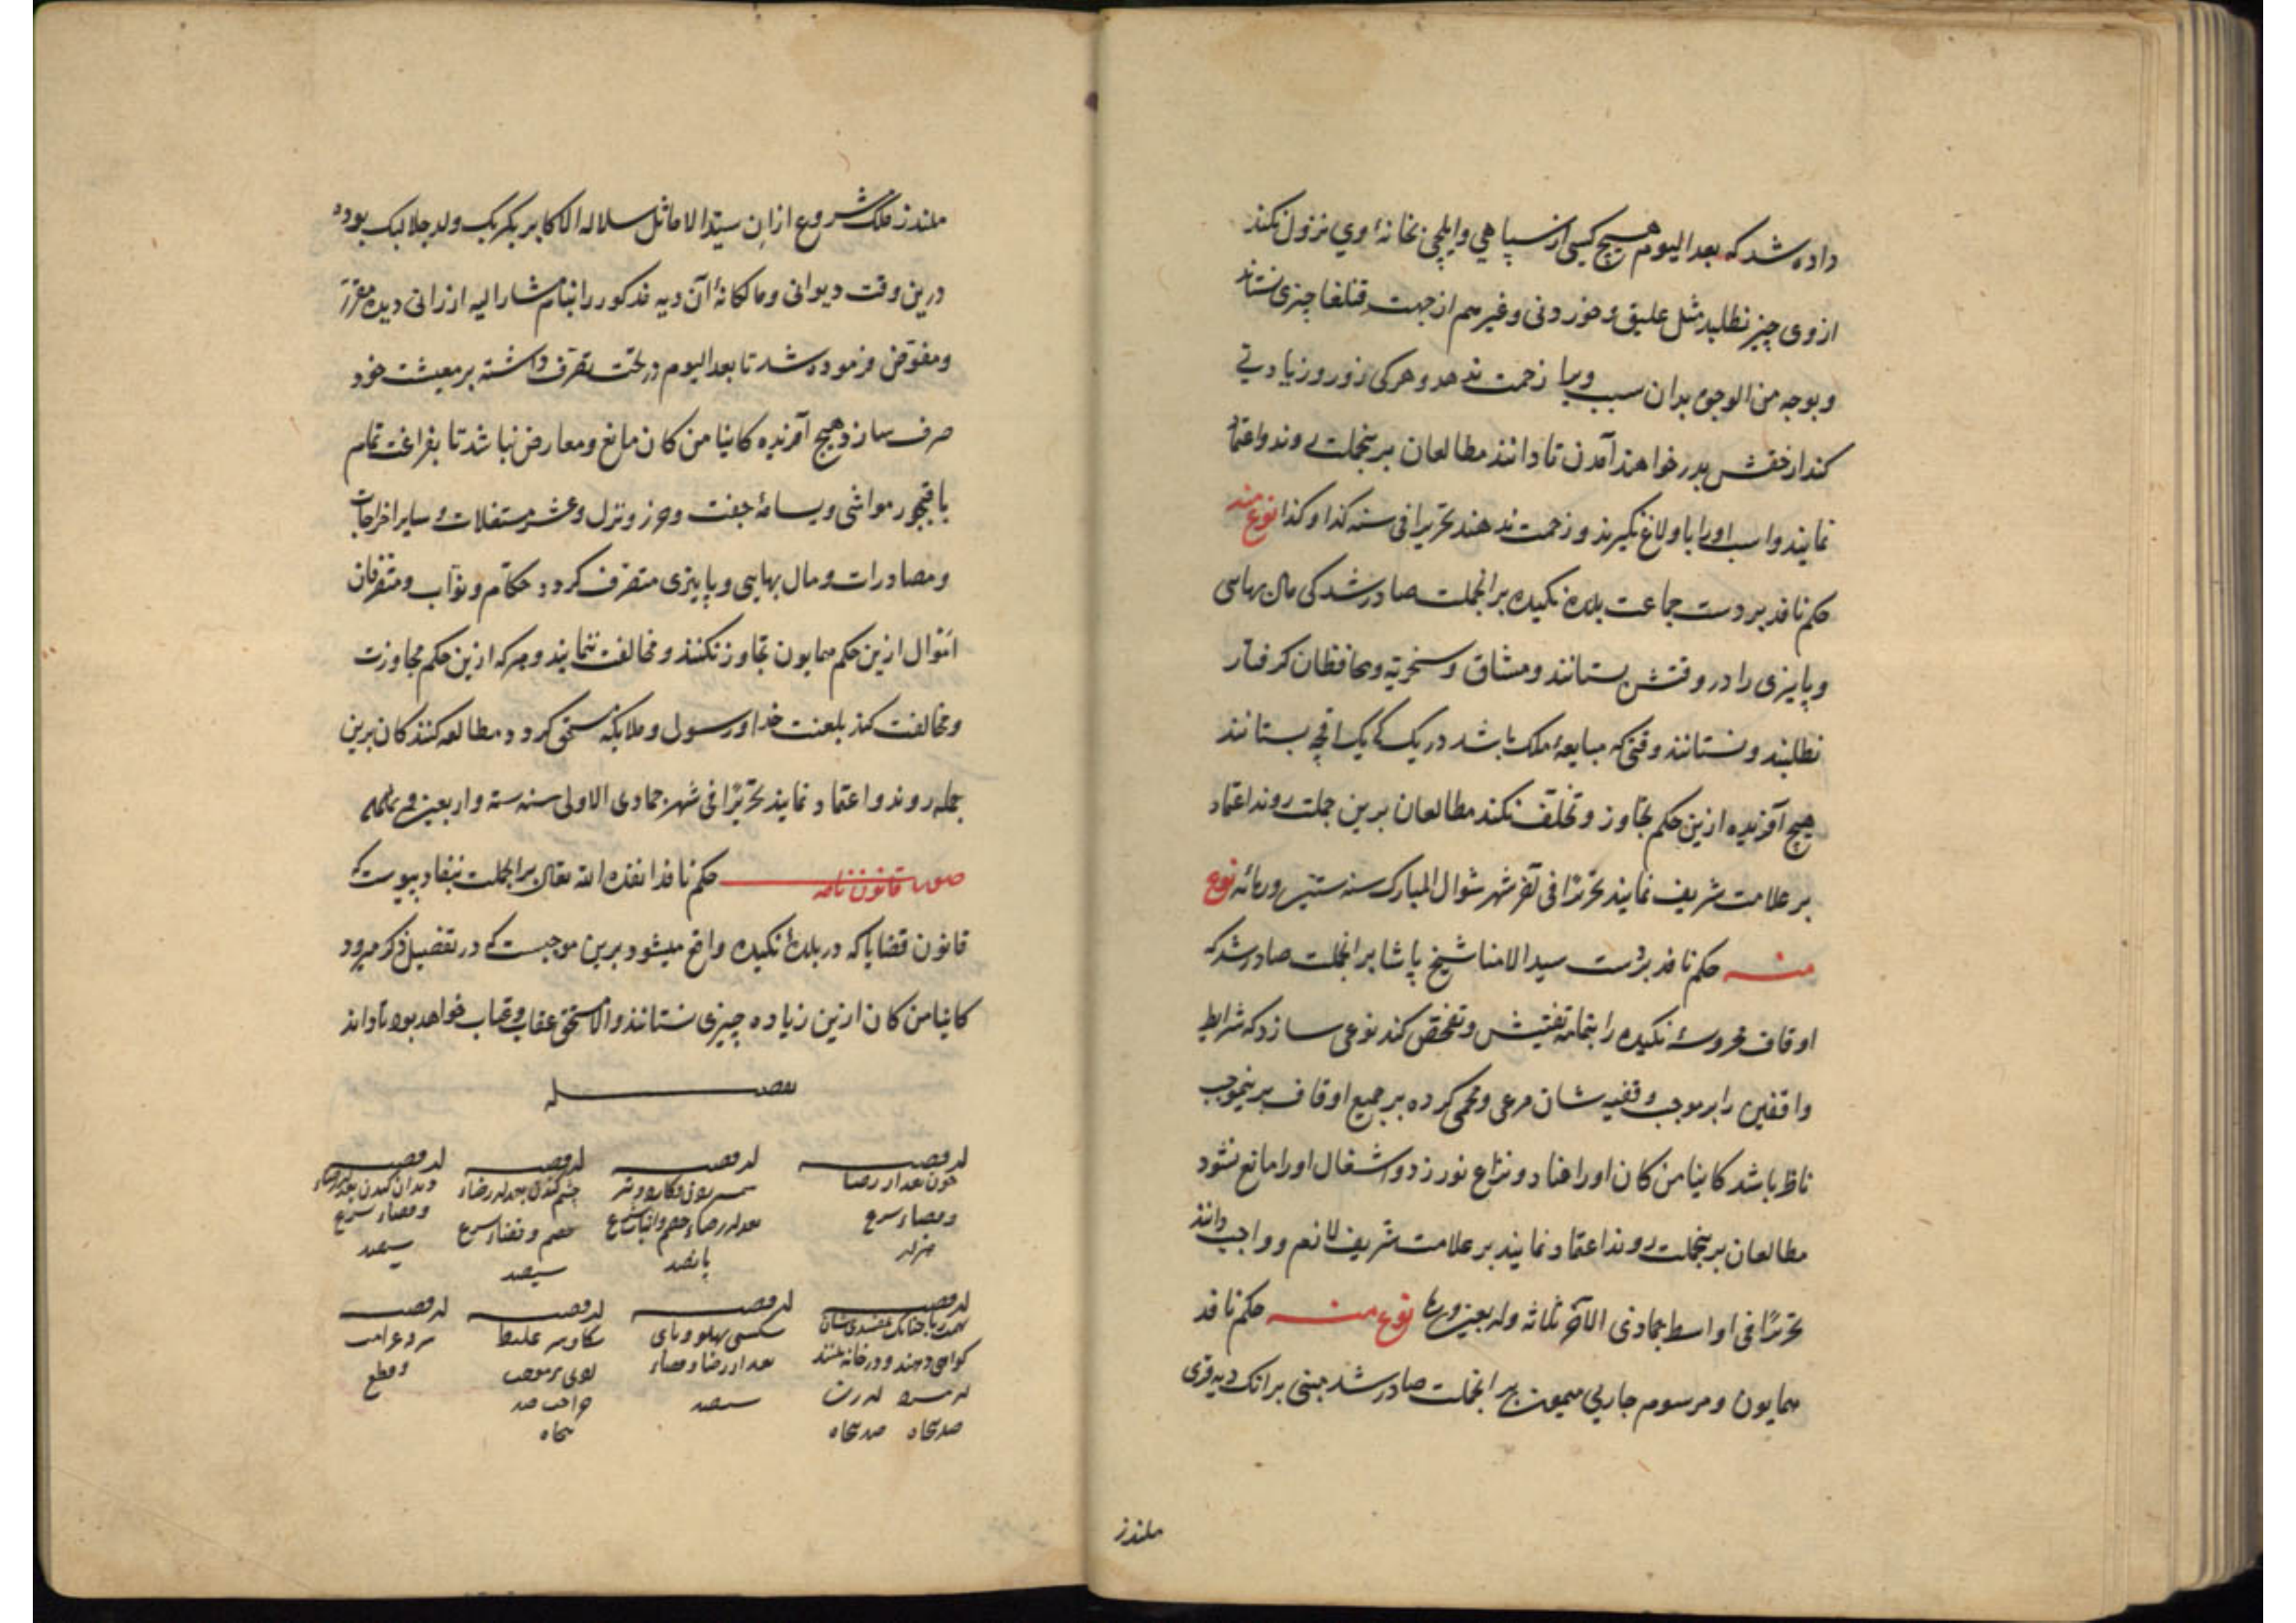 داده شد که بعد الیوم هیچ کسی از سپاهی و ایلچی بخانهٔ اوی نزول نکند
از وی چیز نطلبد مثل علیق و خوردنی و غیرهم از جهت قتلغا چیزی نستاند
و بوجه من الوجوه بدان سبب ویرا زحمت ندهد و هر کی زور و زیادتی
کند از خقش بدر خواهند آمدن تا دانند مطالعان برینجملت روند و اعتماد
نمایند و اسب اورا با ولاغ نگیرند و زحمت ندهند تحریرا فی سنه کذا و کذا نوع منه
حکم نافد بر دست جماعت بلدهٔ نکیده بر انجملت صادر شد کی مال بهاسی
و پاییزی را در وقتش بستانند و مشاق و سخریه و محافظان گرفتار
نطلبند و نستانند وقتی که مبایعهٔ ملک باشد در یک یک اقچه بستانند
هیچ آفریده ازین حکم تجاوز و تخلف نکند مطالعان برین جملت روند اعتماد
بر علامت شریف نمایند تحریرا فی آخر شهر شوال المبارک سنه نوع
منه حکم نافد بر دست سید الامنا شیخ پاشا بر انجملت صادر شد که
اوقاف محروسهٔ نکیده را بتمامه تفتیش و تفحص کند نوعی سازد که شرایط
واقفین را بر موجب وقفیه شان مرعی و محمی کرده بر جمیع اوقاف برینموجب
ناظر باشد کاینا من کان اورا عناد و نزاع نورزد و اشغال اورا مانع نشود
مطالعان برینجملت روند اعتماد نمایند بر علامت شریف لا نعم و واجب دانند
تحریرا فی اواسط جمادی الآخر ثلاثه واربعین نوع منه حکم نافد
همایون و مرسوم جاری میمون بر انجملت صادر شد مبنی بر انک دیه قری
ملندز
ملندز ملک شروع ازان سید الاماثل سلاله الاکابر بکربک ولد جلالبک بوده
درین وقت دیوانی و مالکانهٔ آن دیه مذکور را بنام مشار الیه ارزانی دیده مقرر
و مفوض فرموده شد تا بعد الیوم در تحت تصرف داشته بر معیشت خود
صرف سازد هیچ آفریده کاینا من کان مانع و معارض نباشد تا بفراغت تمام
با قبجور مواشی و یسامهٔ جفت و حرز و نزل و عشر مستغلات و سایر اخراجات
و مصادرات و مال بهاسی و پاییزی متصرف کردد حکام و نواب و متصرفان
اموال ازین حکم همایون تجاوز نکنند و مخالفت ننمایند و هر که ازین حکم مجاوزت
و مخالفت کند بلعنت خدا و رسول و ملایکه مستحق کردد مطالعه کنندکان برین
جمله روند و اعتماد نمایند تحریرا فی شهر جمادی الاولی سنه سته و اربعین و
صورت قانون نامه حکم نافد انفذه الله تعالی بر انجملت بنفاد پیوست که
قانون قضایا که در بلدهٔ نکیده واقع میشود برین موجبست که در تفصیل ذکر میرود
کاینا من کان ازین زیاده چیزی نستانند و الا مستحق عقاب و عتاب خواهد بود تا دانند
تفصیله
له قصه له قصه له قصه له قصه
خون بعد از رضا
و قضاء شرع
بعد از رضاء خصم و اثبات شرع
پانصد
چشم کندن بعد از رضاء
خصم و قضاء شرع
سیصد
دندان کندن
و قضاء شرع
سیصد
له قصه له قصه له قصه له قصه
کواهی دهند و در خانه
صد پنجاه صد پنجاه
شکستن پهلو و پای
بعد از رضا و قضاء
سیصد
صد
پنجاه
و قطع